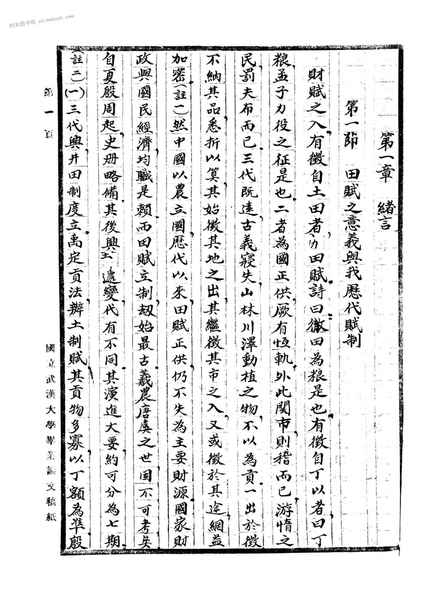 第一章 緒言
第一節 田賦之意義與我歷代賦制
財賦之入有徵自土田者曰田賦詩曰徹田為粮是也有徵自丁以者曰丁
粮孟子力役之征是也二者為國正供厥有恆軌外此関市則稽而已游惰之
民罰夫布而已三代既遠古義寖失山林川澤動植之物不以為貢一出於徵
不納其品悉折以算其始徵其地之出其繼徵其市之入又或徵於其途網益
加密(註一)然中國以農立國歷代以來田賦正供仍不失為主要財源國家財
政與國民經濟均職是賴而田賦立制刱始最古羲農唐虞之世固不可考矣
自夏殷周起史册略備其後興遞變代有不同其演進大要約可分為七期
(註二)(一)三代興井田制度立禹定貢法辦土制賦其貢物多寡以丁額為準殷
第一頁
國立武漢大學畢業論文稿紙